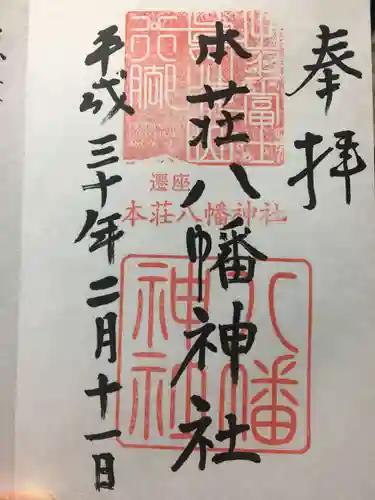 奉拝
本荘八幡神社
平成三十年二月十一日
遷座
本荘八幡神社
八幡
神社